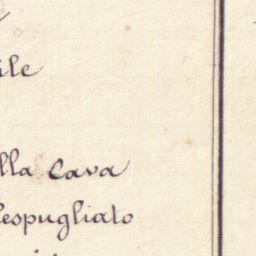 ile
lla Cava
espugliato